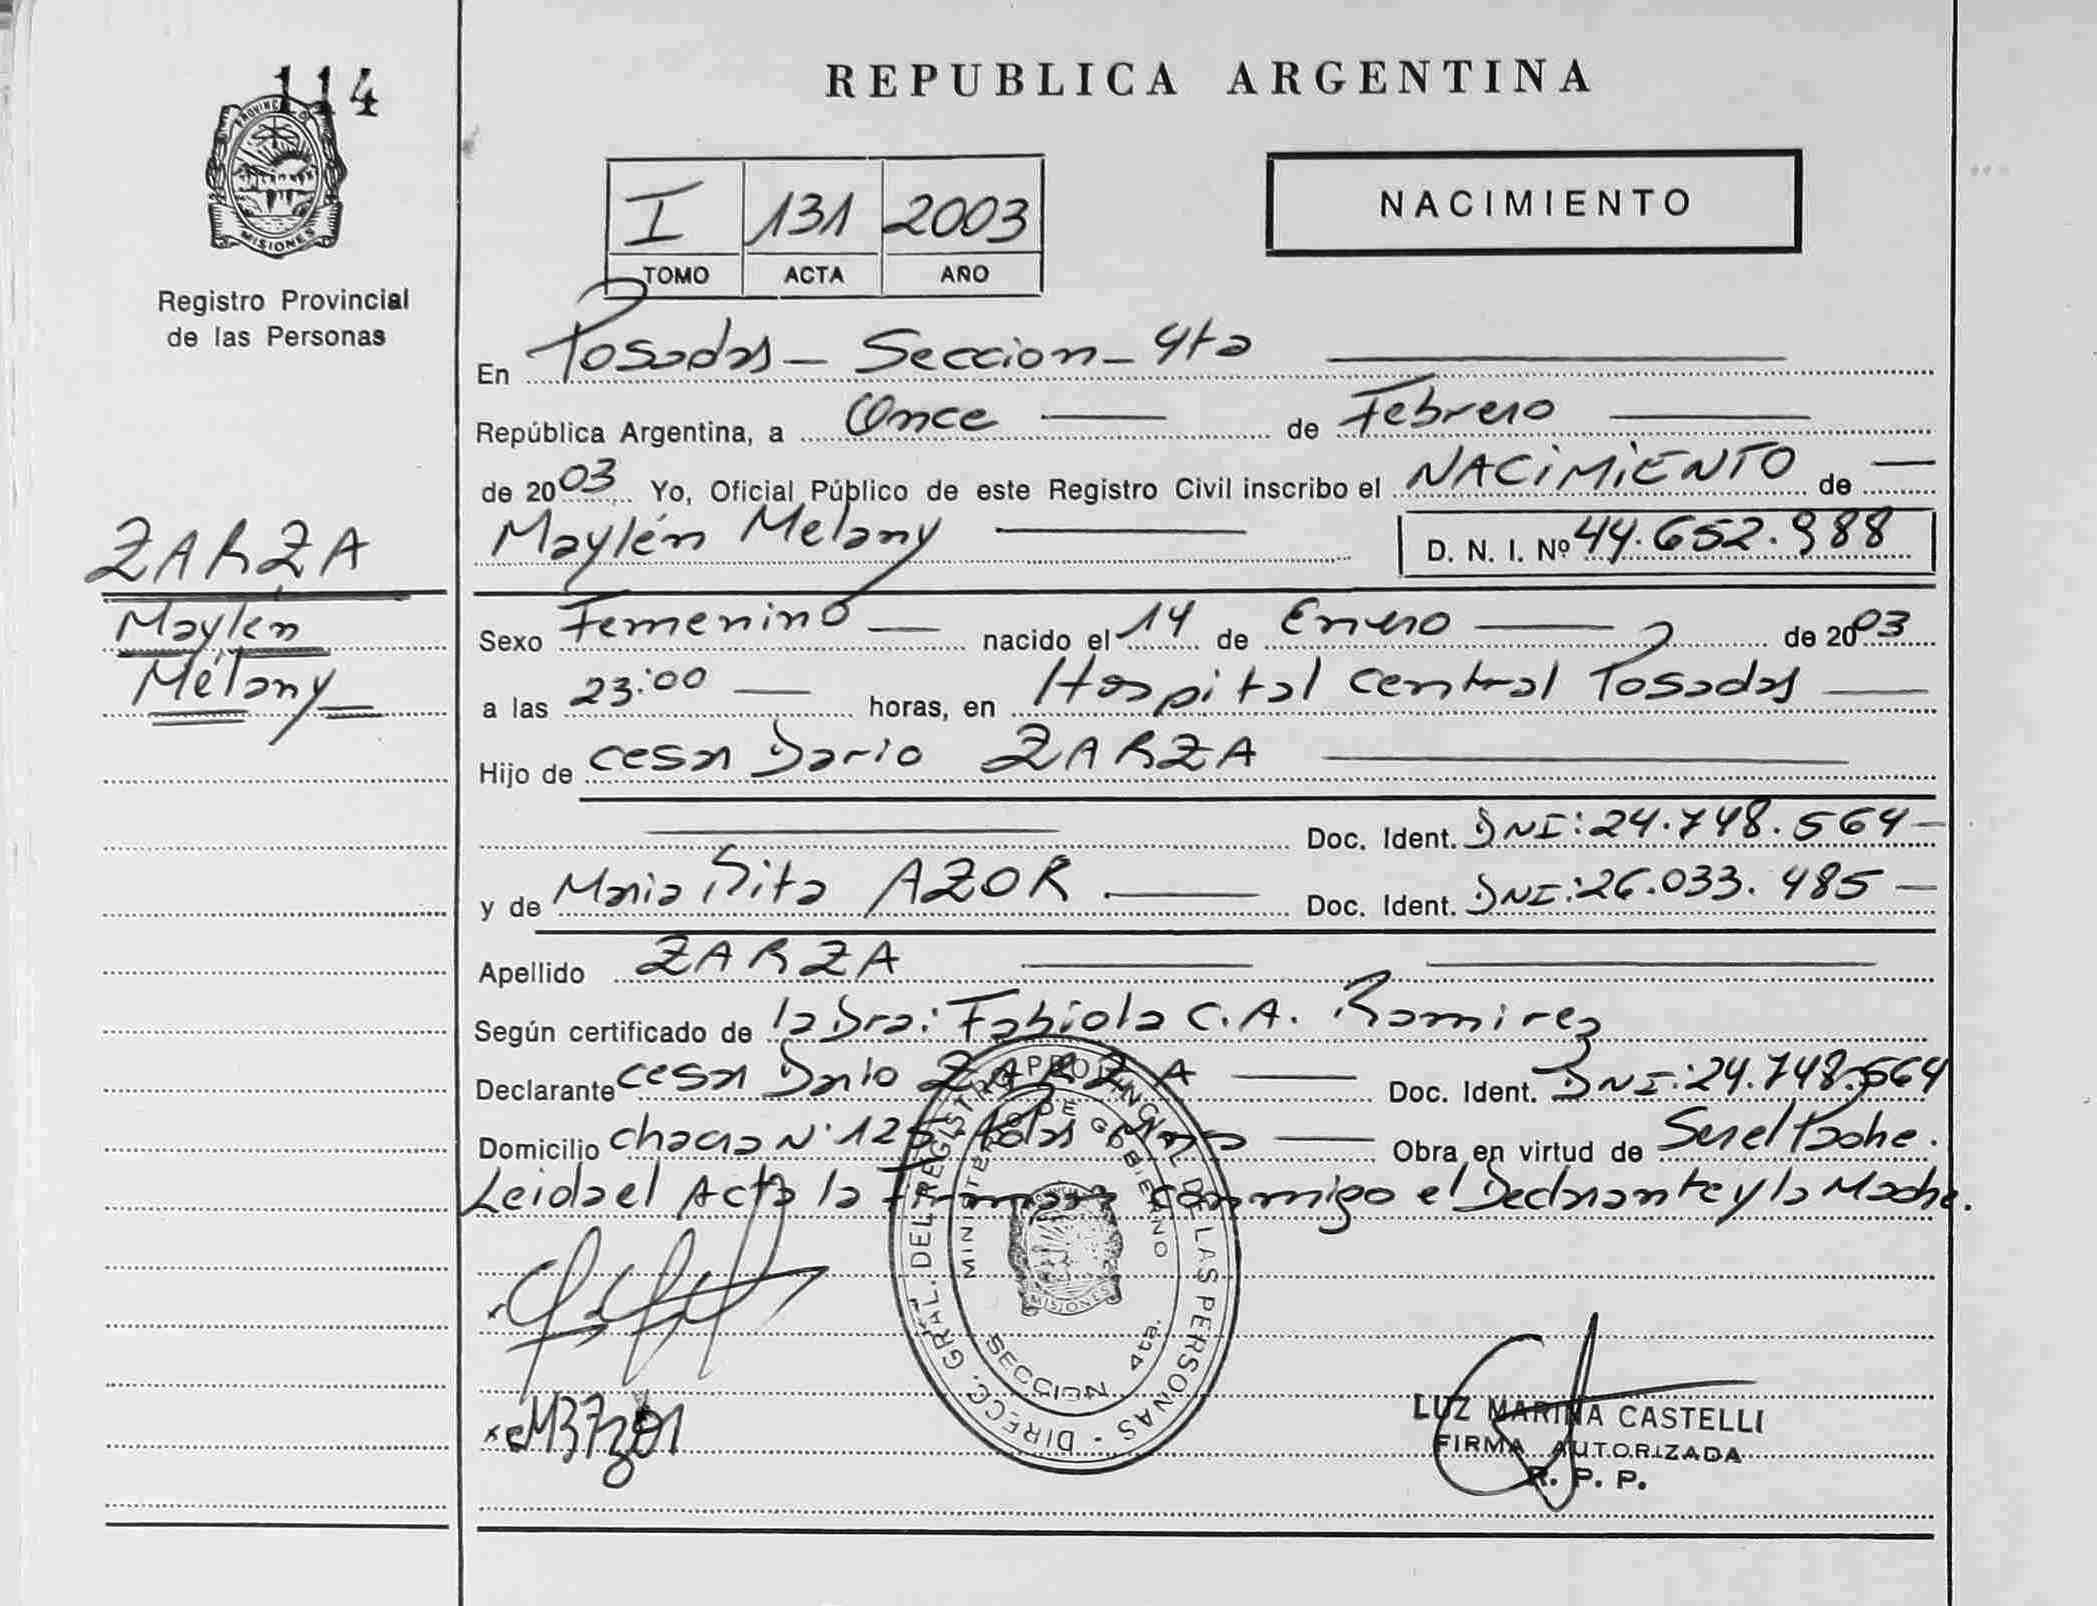 114
PROVINCIA D
MISIONES
Registro Provincial
de las Personas
REPUBLICA ARGENTINA
I 131 2003
TOMO ACTA AÑO
NACIMIENTO
En Posadas - Seccion - 4ta
República Argentina, a Once de Febrero
de 2003 Yo, Oficial Público de este Registro Civil inscribo el NACIMIENTO de
Maylén Melany D. N. I. Nº 44.652.988
ZARZA
Maylén
Melany
Sexo Femenino nacido el 14 de Enero de 2003
a las 23:00 horas, en Hospital Central Posadas
Hijo de Cesar Dario ZARZA
Doc. Ident. DNI: 24.748.564
y de Maria Rita AZOR Doc. Ident. DNI: 26.033.485
Apellido ZARZA
Según certificado de la Dra: Fabiola C. A. Ramirez
Declarante Cesar Dario ZARZA Doc. Ident. DNI: 24.748.564
Domicilio Chacra Nº 125 Obra en virtud de Ser el Padre.
Leida el Acta la Firman conmigo el Declarante y la Madre.
DIRECC. GRAL. DEL REGISTRO PROVINCIAL DE LAS PERSONAS
MINISTERIO DE GOBIERNO
MISIONES
SECCION 4ta.
LUZ MARINA CASTELLI
FIRMA AUTORIZADA
R. P. P.